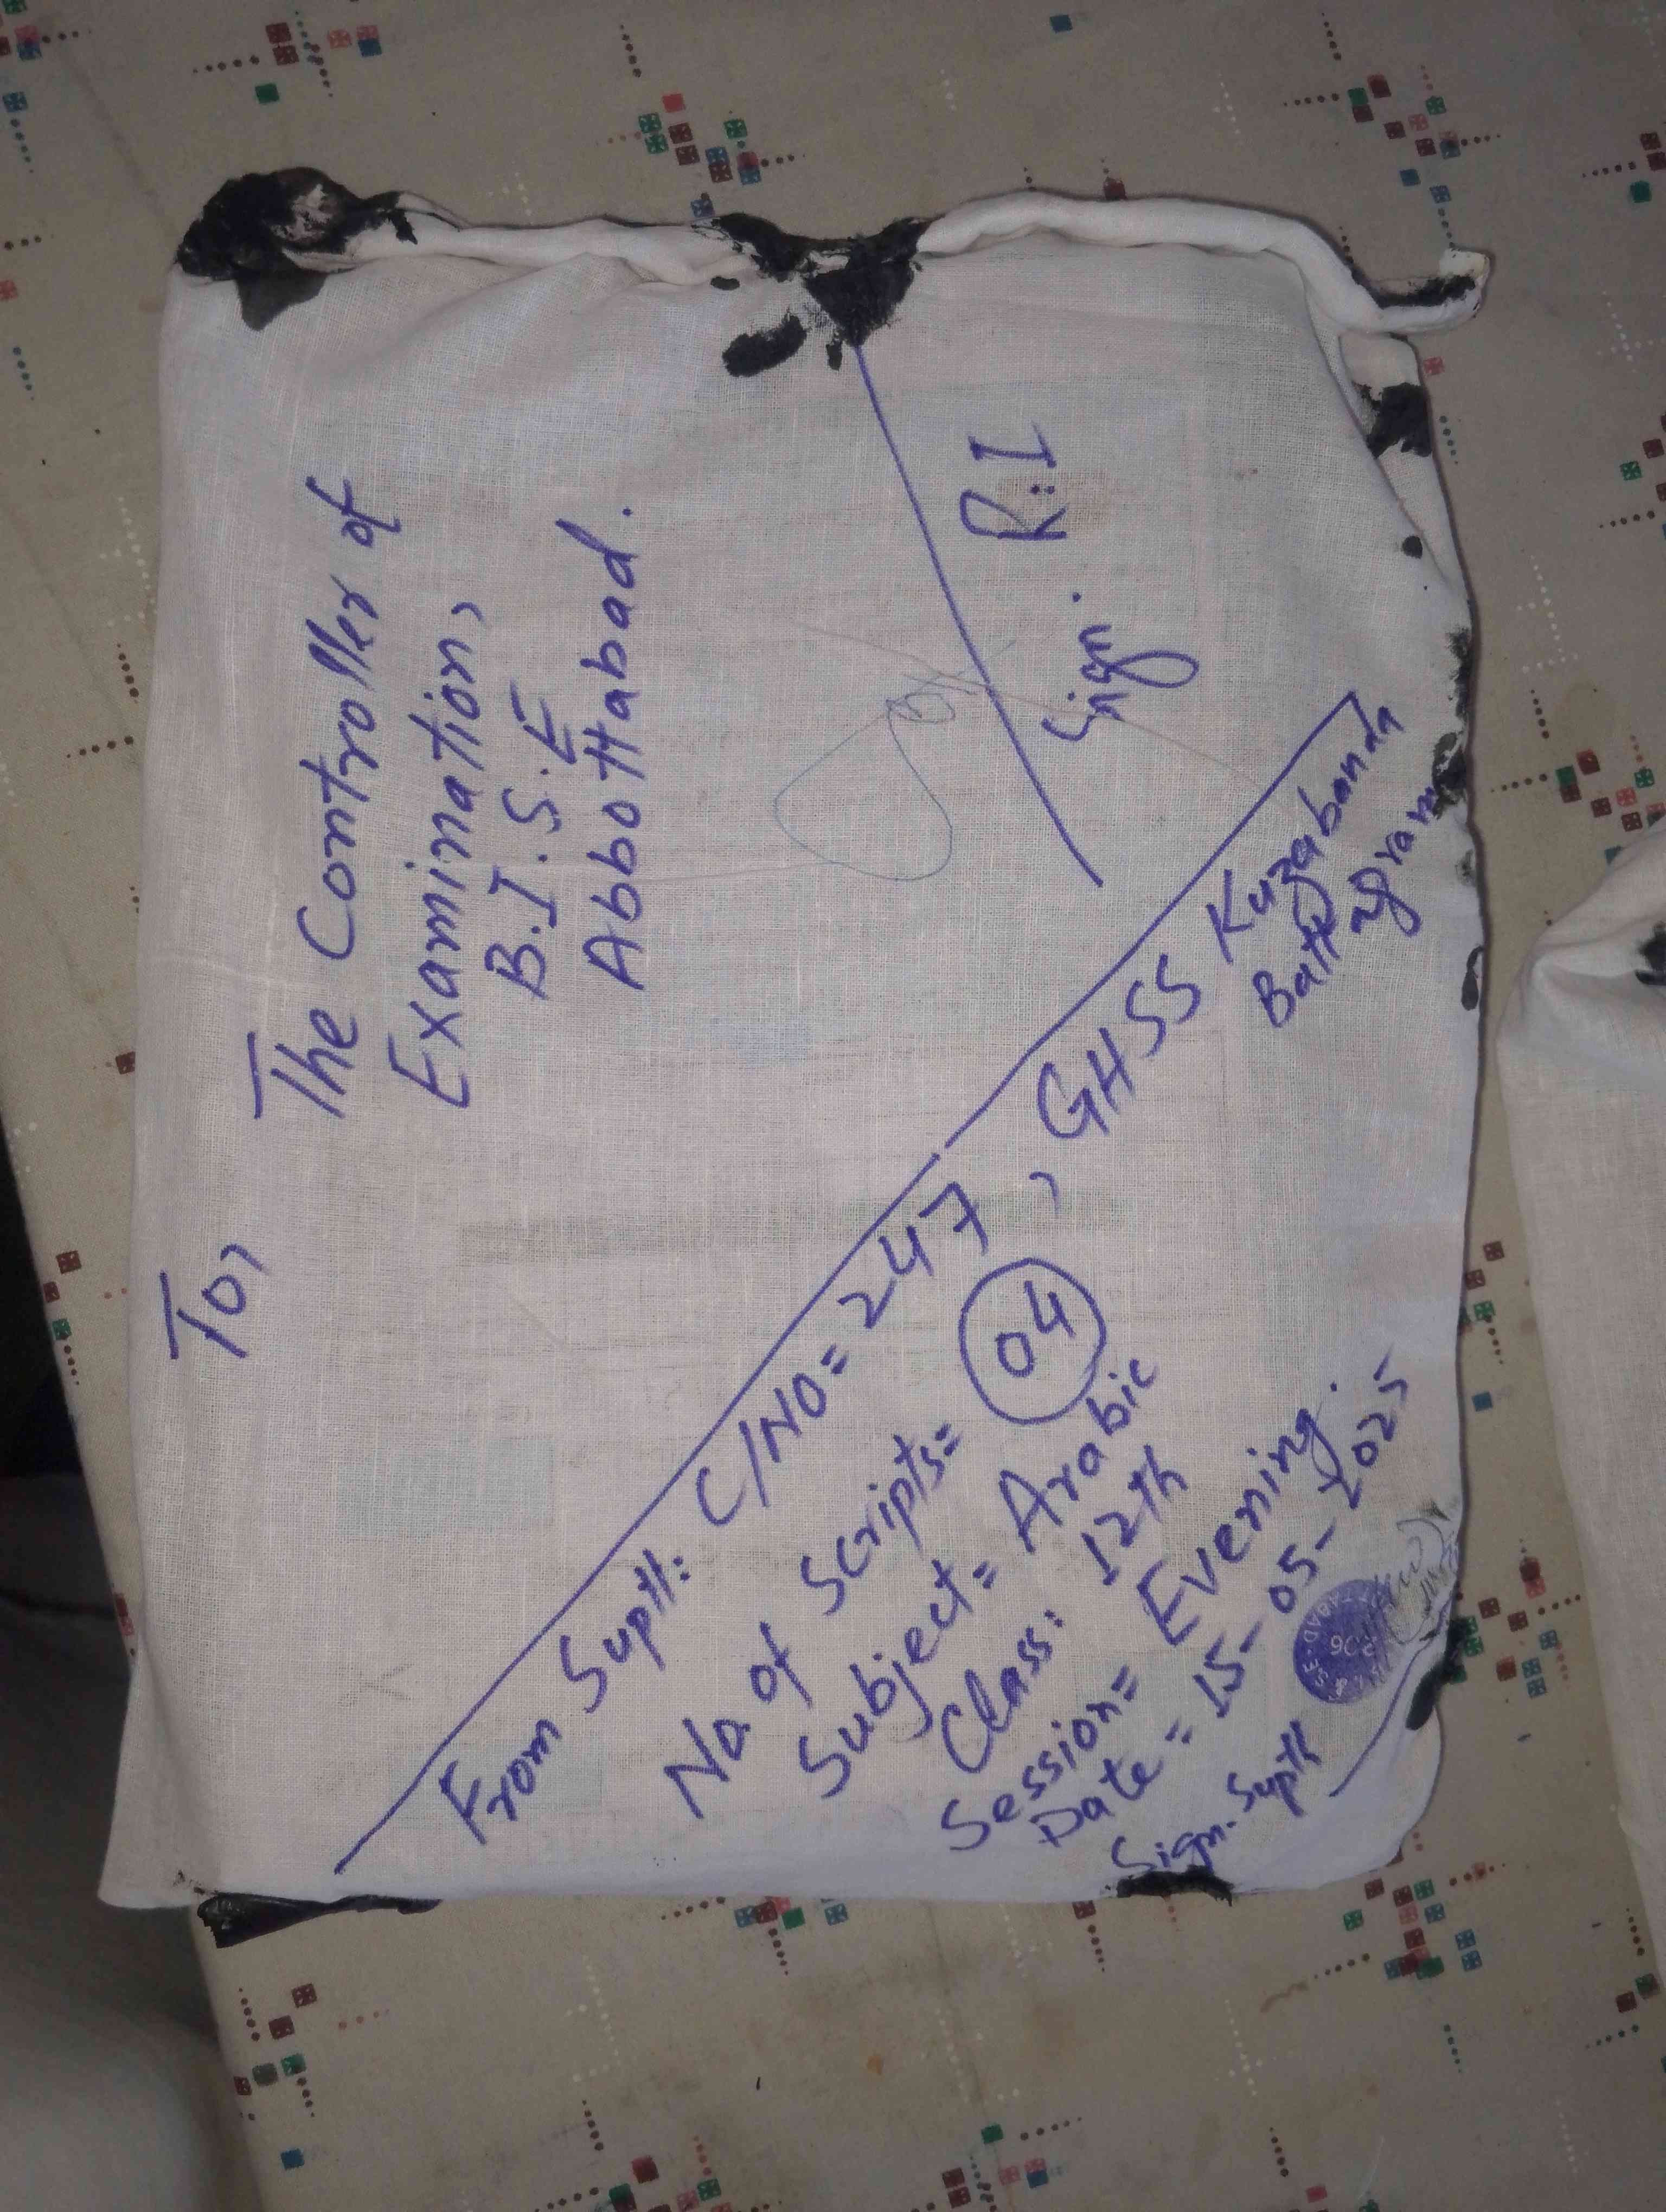 To,
The Controller of
Examination,
B.I.S.E
Abbottabad.
R:I
Sign.
From Suptt: C/No= 247, GHSS Kuzabanda
Battagram
No. of Scripts= 04
Subject= Arabic
Class: 12th
Session= Evening.
Date= 15-05-2025
Sign. Suptt